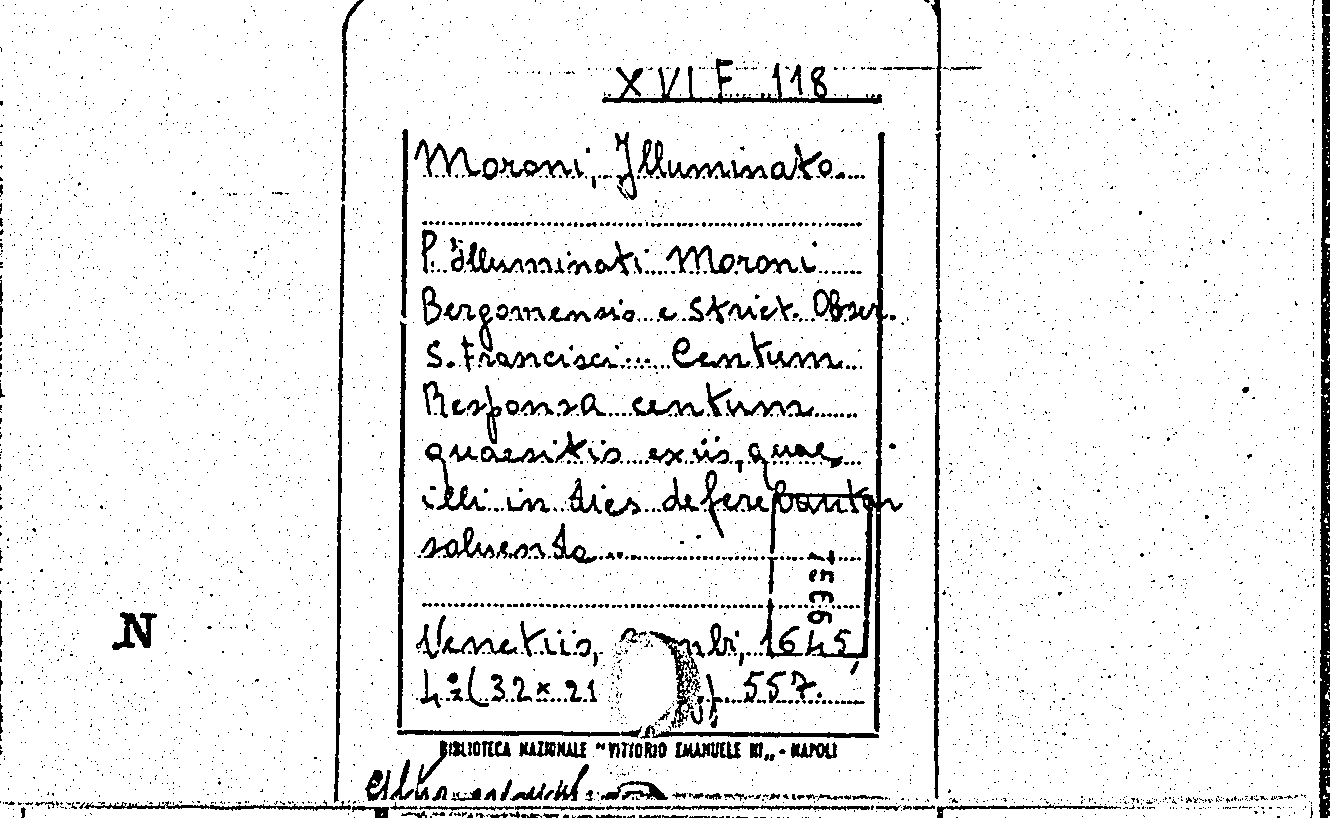 XVI F 118
Moroni, Illuminato.
P. Illuminati Moroni
Bergomensis e Strict. Obser.
S. Francisci... Centum
Responsa centum
quaesitis exiis, quae
illi in dies deferebantur
soluenda...
9351
Venetiis, 1645,
4º (32×21 557.
N
BIBLIOTECA NAZIONALE "VITTORIO EMANUELE III" - NAPOLI